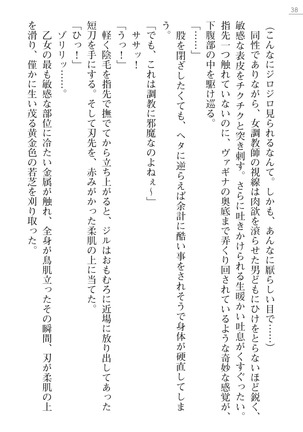 38
（こんなにジロジロ見られるなんて。しかも、あんなに厭らしい目で……）
同性でありながら、女調教師の視線は肉欲を滾らせた男どもにひけをとらないほど鋭く、
敏感な表皮をチクチクと突き刺す。さらに吐きかけられる生暖かい吐息がくすぐったい。
指先一つ触れていないのに、ヴァギナの奥底まで弄くり回されているような奇妙な感覚が、
下腹部の中を駆け巡る。
股を閉ざしたくても、ヘタに逆らえば余計に酷い事をされそうで身体が硬直してしま
う。
「でも、これは調教に邪魔なのよねぇ～」
ササッ！
「うっ！」
軽く陰毛を指先で撫でてから立ち上がると、ジルはおもむろに近場に放り出してあった
短刀を手にする。そして刃先を、赤みがかった柔肌の上に当てた。
「ひっ！」
ゾリリッ……。
乙女の最も敏感な部位に冷たい金属が触れ、全身が鳥肌立ったその瞬間、刃が柔肌の上
を滑り、僅かに生い茂る黄金色の若芝を刈り取った。